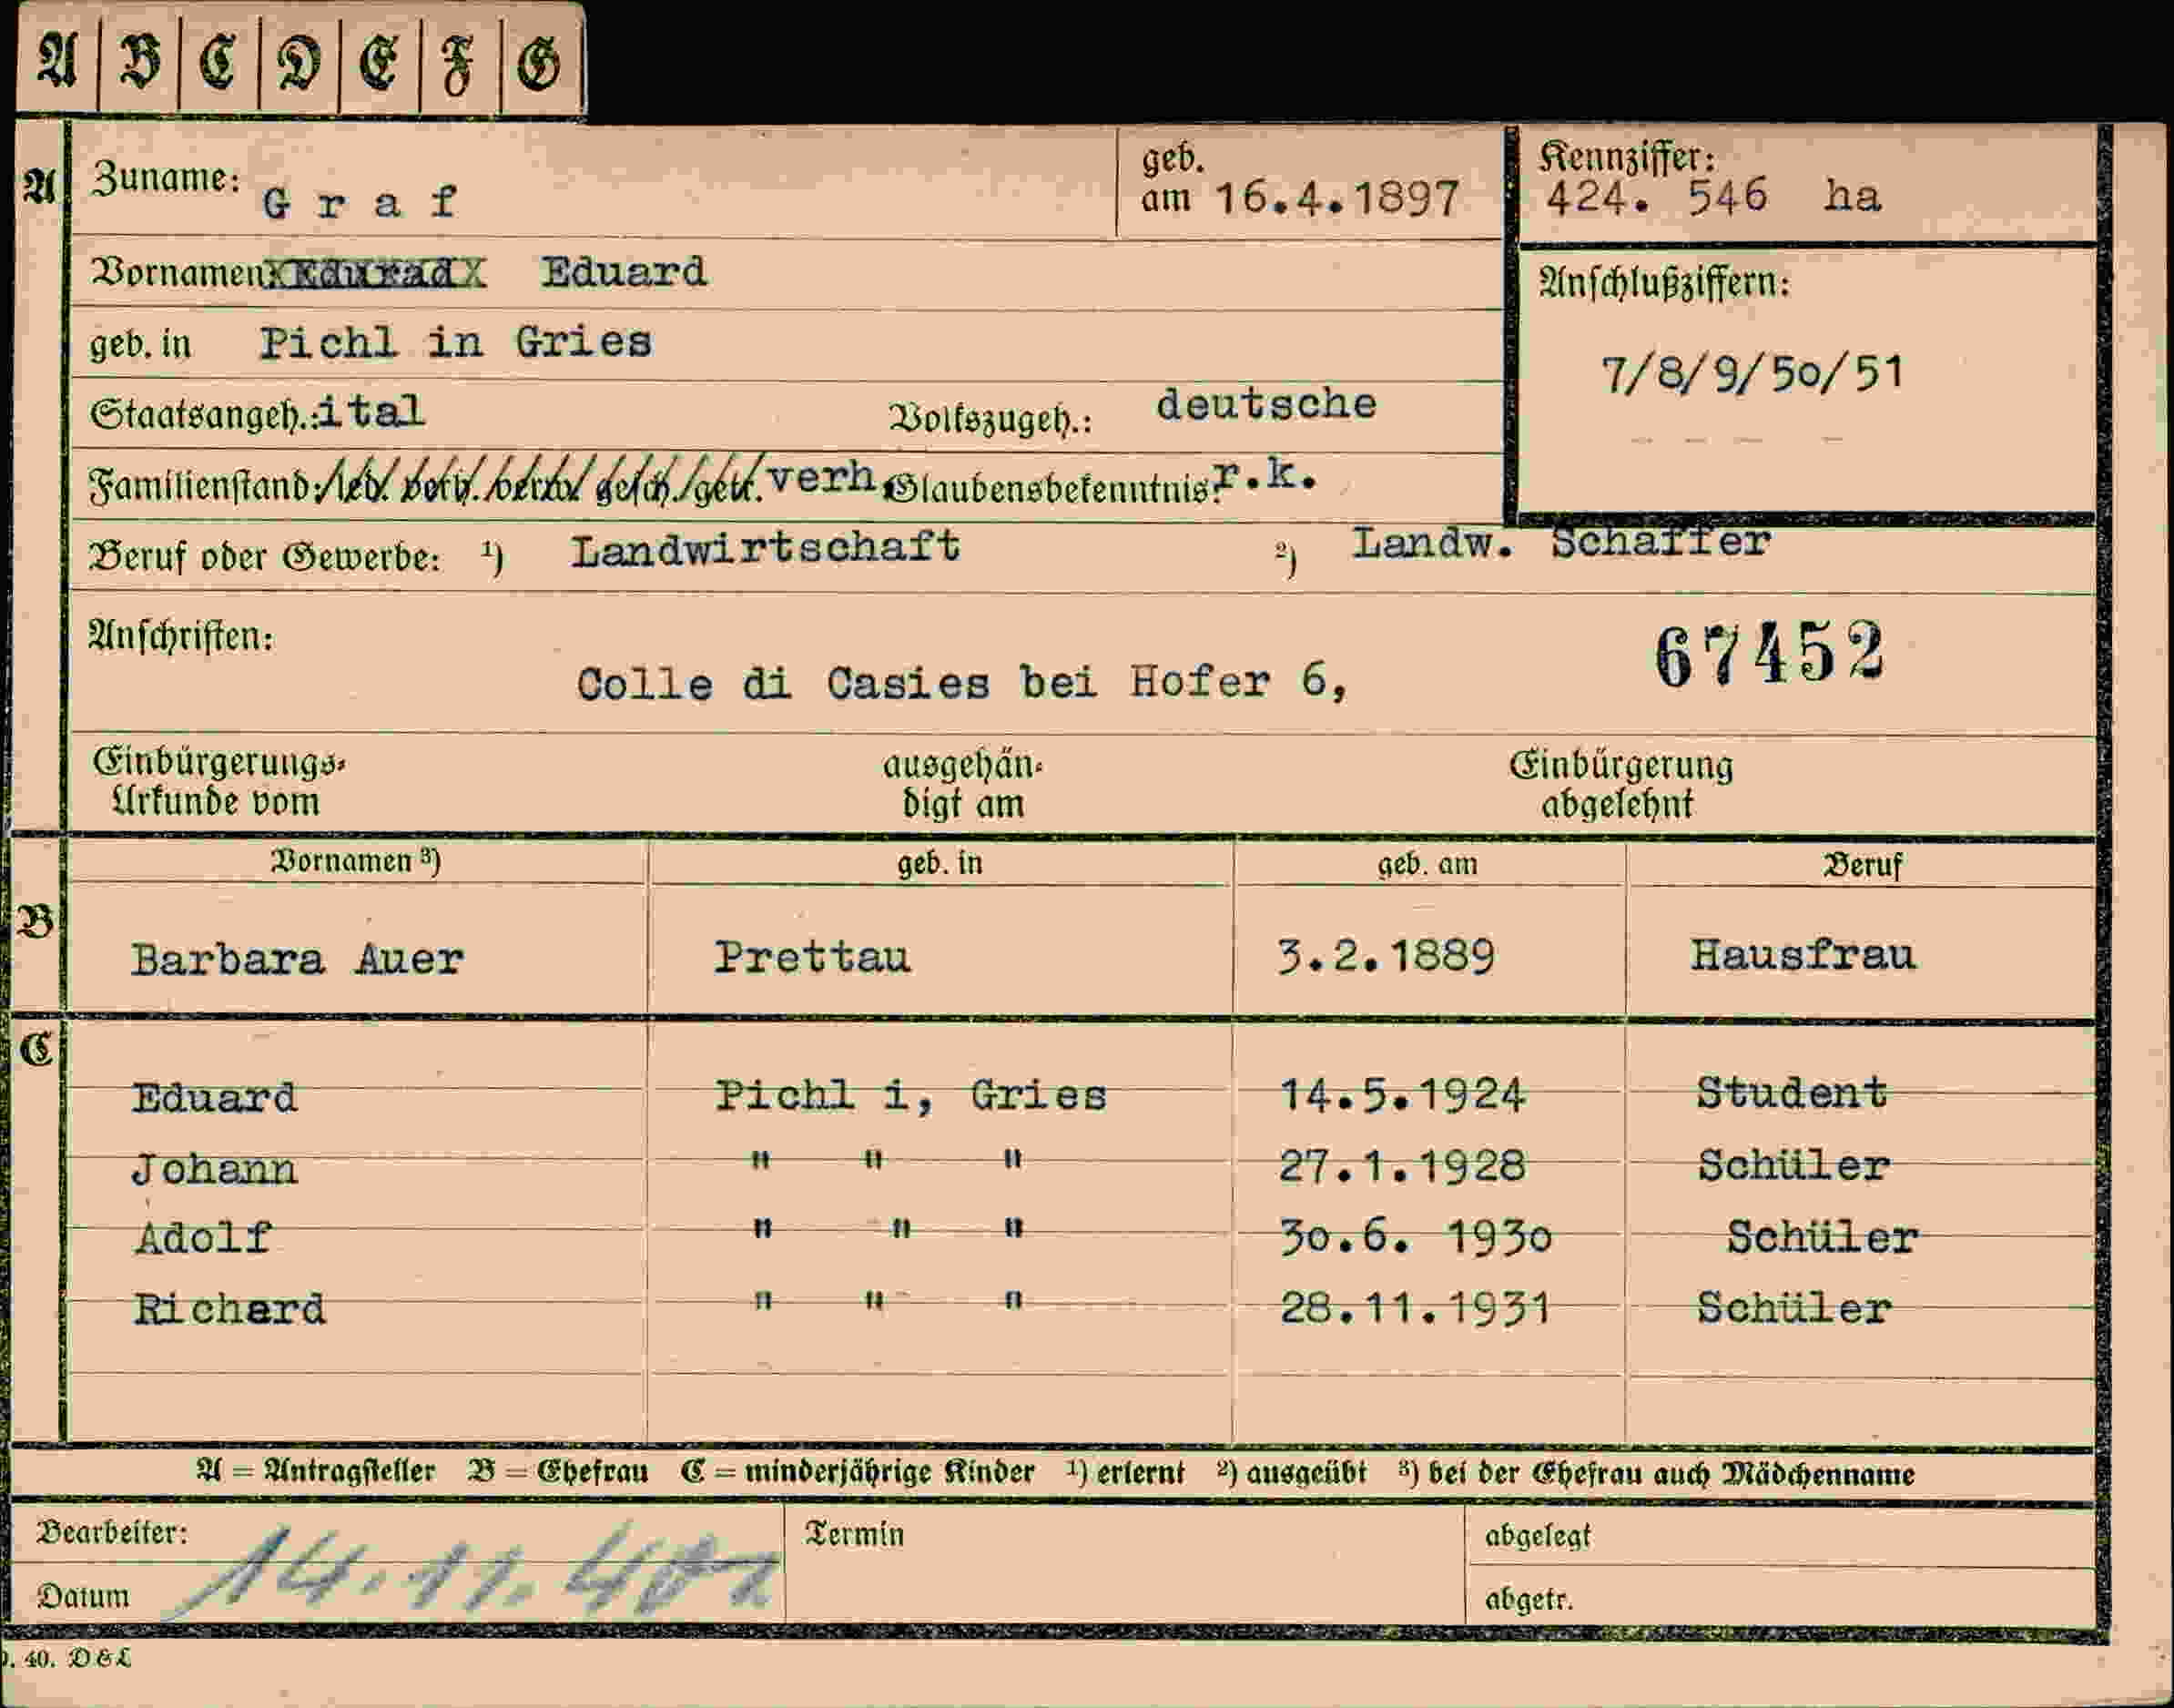 A B C D E F G
A Zuname: Graf geb. am 16.4.1897 Kennziffer: 424. 546 ha
Vornamen: Eduard
Anschlußziffern:
geb. in Pichl in Gries
7/8/9/50/51
Staatsangeh.: ital Volkszugeh.: deutsche
Familienstand: led. verh. verw. gesch. getr. verh. Glaubensbekenntnis: r.k.
Beruf oder Gewerbe: 1) Landwirtschaft 2) Landw. Schaffer
Anschriften: 67452
Colle di Casies bei Hofer 6,
Einbürgerungs- ausgehän- Einbürgerung
Urkunde vom digt am abgelehnt
Vornamen 3) geb. in geb. am Beruf
B
Barbara Auer Prettau 3.2.1889 Hausfrau
C
Eduard Pichl i, Gries 14.5.1924 Student
Johann " " " 27.1.1928 Schüler
Adolf " " " 30.6. 1930 Schüler
Richard " " " 28.11.1931 Schüler
A = Antragsteller B = Ehefrau C = minderjährige Kinder 1) erlernt 2) ausgeübt 3) bei der Ehefrau auch Mädchenname
Bearbeiter: Termin abgelegt
14.11.40
Datum abgetr.
. 40. D & L